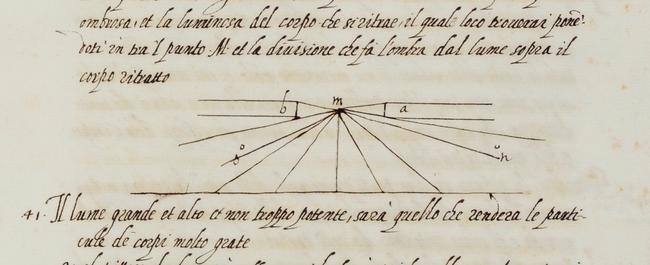 ombrosa, et la luminosa del corpo che si ritrae, il quale loco trouarai ponẽ-
doti in tra'l punto M. et la diuisione che fà l'ombra dal lume sopra il
corpo ritratto
b m a
n
41. Il lume grande et alto et non troppo potente, sarà quello che renderà le parti-
cule de corpi molto grate